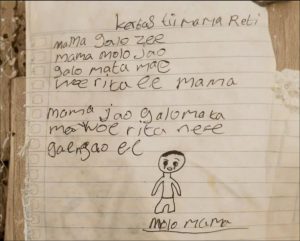 kertas tii mama Reti
mama galo zee
mama molo jao
galo mata mae
woe rita ee mama
mama jao galo mata
mae woe rita nete
gaergao ee
molo mama